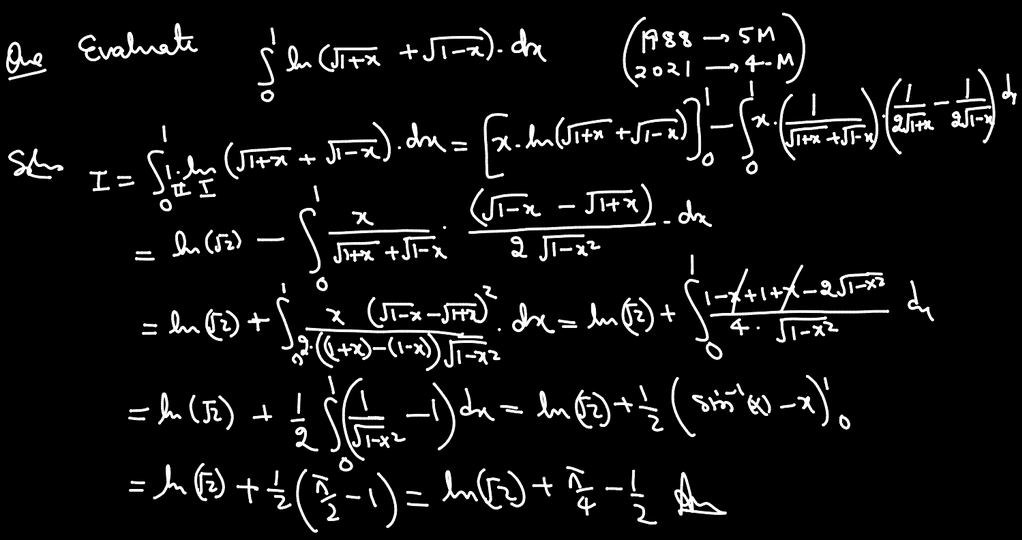 Que Evaluate ∫₀¹ ln(√(1+x) + √(1-x)).dx (1988 → 5M
2021 → 4-M)
Soln I = ∫₀¹ 1.ln(√(1+x) + √(1-x)).dx = [x.ln(√(1+x) + √(1-x))]₀¹ - ∫₀¹ x.(1/(√(1+x)+√(1-x))).(1/(2√(1+x)) - 1/(2√(1-x))) dx
II I
= ln(√2) - ∫₀¹ x/(√(1+x)+√(1-x)) . (√(1-x) - √(1+x))/(2√(1-x²)) .dx
= ln(√2) + ∫₀¹ x (√(1-x)-√(1+x))²/(2.((1+x)-(1-x))√(1-x²)) .dx = ln(√2) + ∫₀¹ (1-x+1+x-2√(1-x²))/(4.√(1-x²)) dx
= ln(√2) + 1/2 ∫₀¹ (1/√(1-x²) - 1)dx = ln(√2) + 1/2 (sin⁻¹(x) - x)₀¹
= ln(√2) + 1/2 (π/2 - 1) = ln(√2) + π/4 - 1/2 Ans